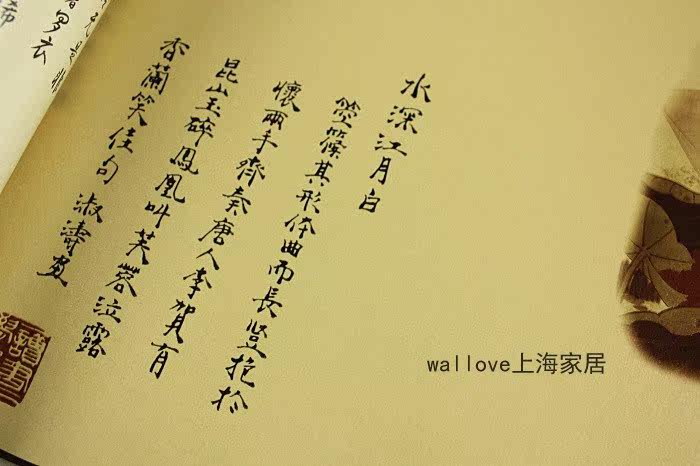 水深江月白
箜篌其形体曲而長竖抱於
懷兩手齊奏唐人李賀有
昆山玉碎鳳凰叫芙蓉泣露
香蘭笑佳句 淑濤畫
wallove上海家居